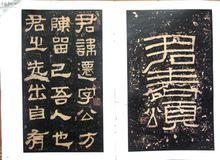 君表頌
君諱遷字公方
陳留己吾人也
君之先出自有